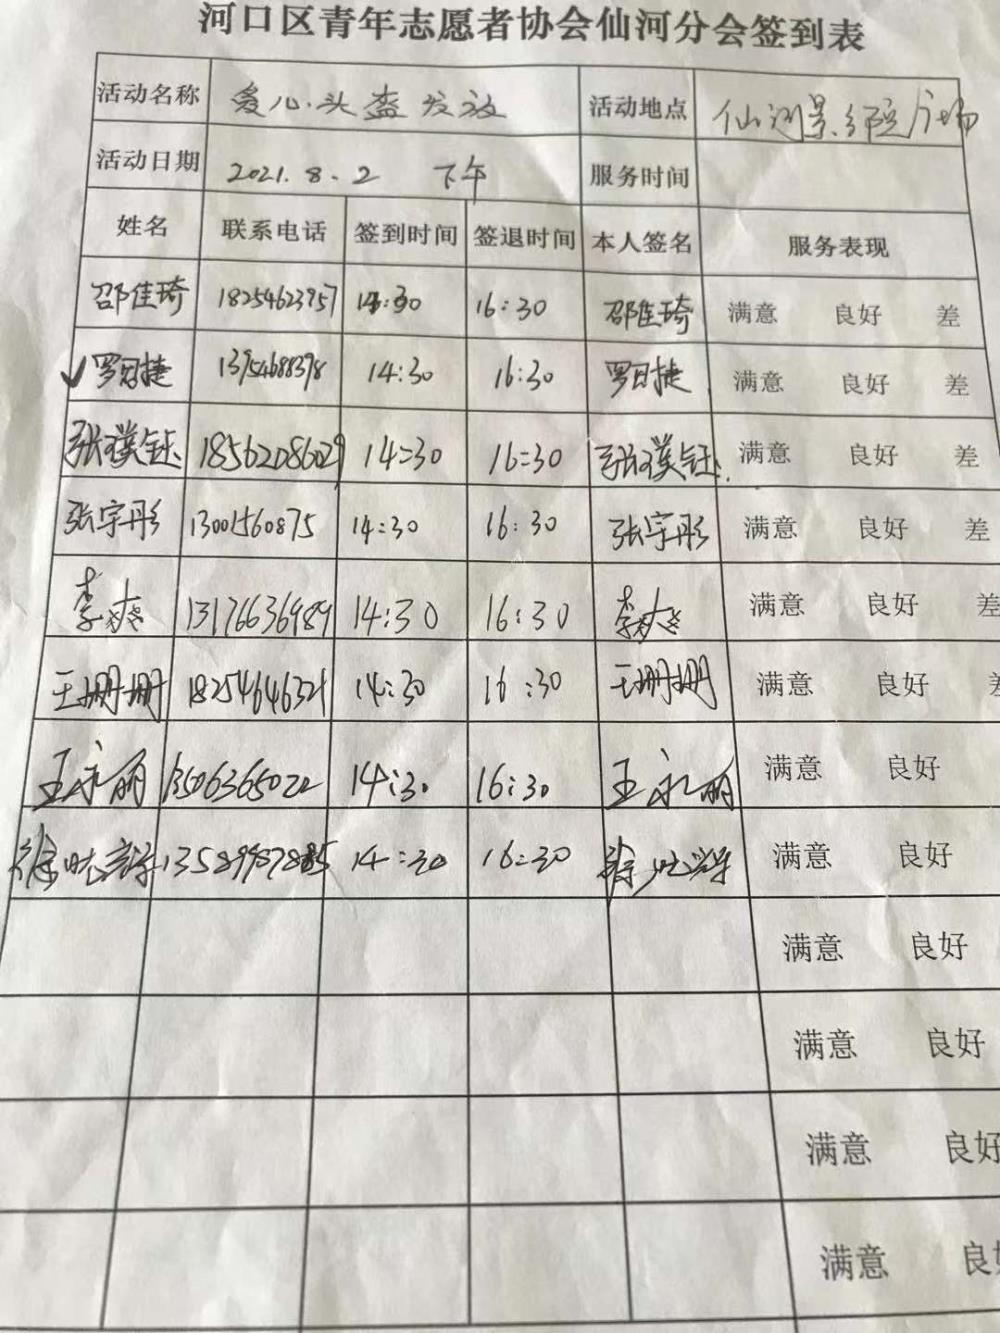 河口区青年志愿者协会仙河分会签到表
活动名称 爱心头盔发放 活动地点 仙河景苑广场
活动日期 2021.8.2 下午 服务时间
姓名 联系电话 签到时间 签退时间 本人签名 服务表现
邵佳琦 18254623957 14:30 16:30 邵佳琦 满意 良好 差
罗日捷 13954688378 14:30 16:30 罗日捷 满意 良好 差
张璞钰 18562086029 14:30 16:30 张璞钰 满意 良好 差
张宇彤 13001560875 14:30 16:30 张宇彤 满意 良好 差
李爽 13176636989 14:30 16:30 李爽 满意 良好 差
王珊珊 18254646321 14:30 16:30 王珊珊 满意 良好 差
王永丽 13506365022 14:30 16:30 王永丽 满意 良好
徐 14:30 16:30 徐 满意 良好
满意 良好
满意 良好
满意 良好
满意 良